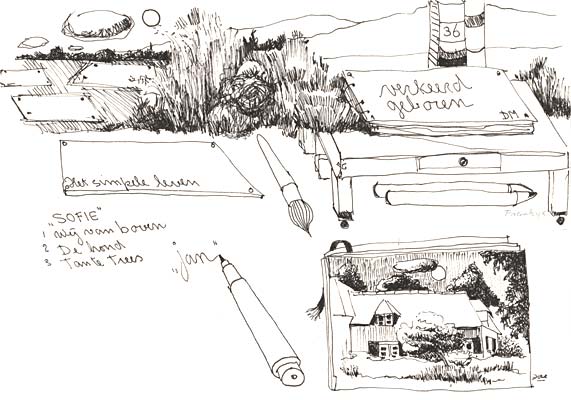 36
verkeerd
geboren
DM
Het simpele leven
"SOFIE"
1 wij van boven
2 De hond
3 Tante Trees
"jan"